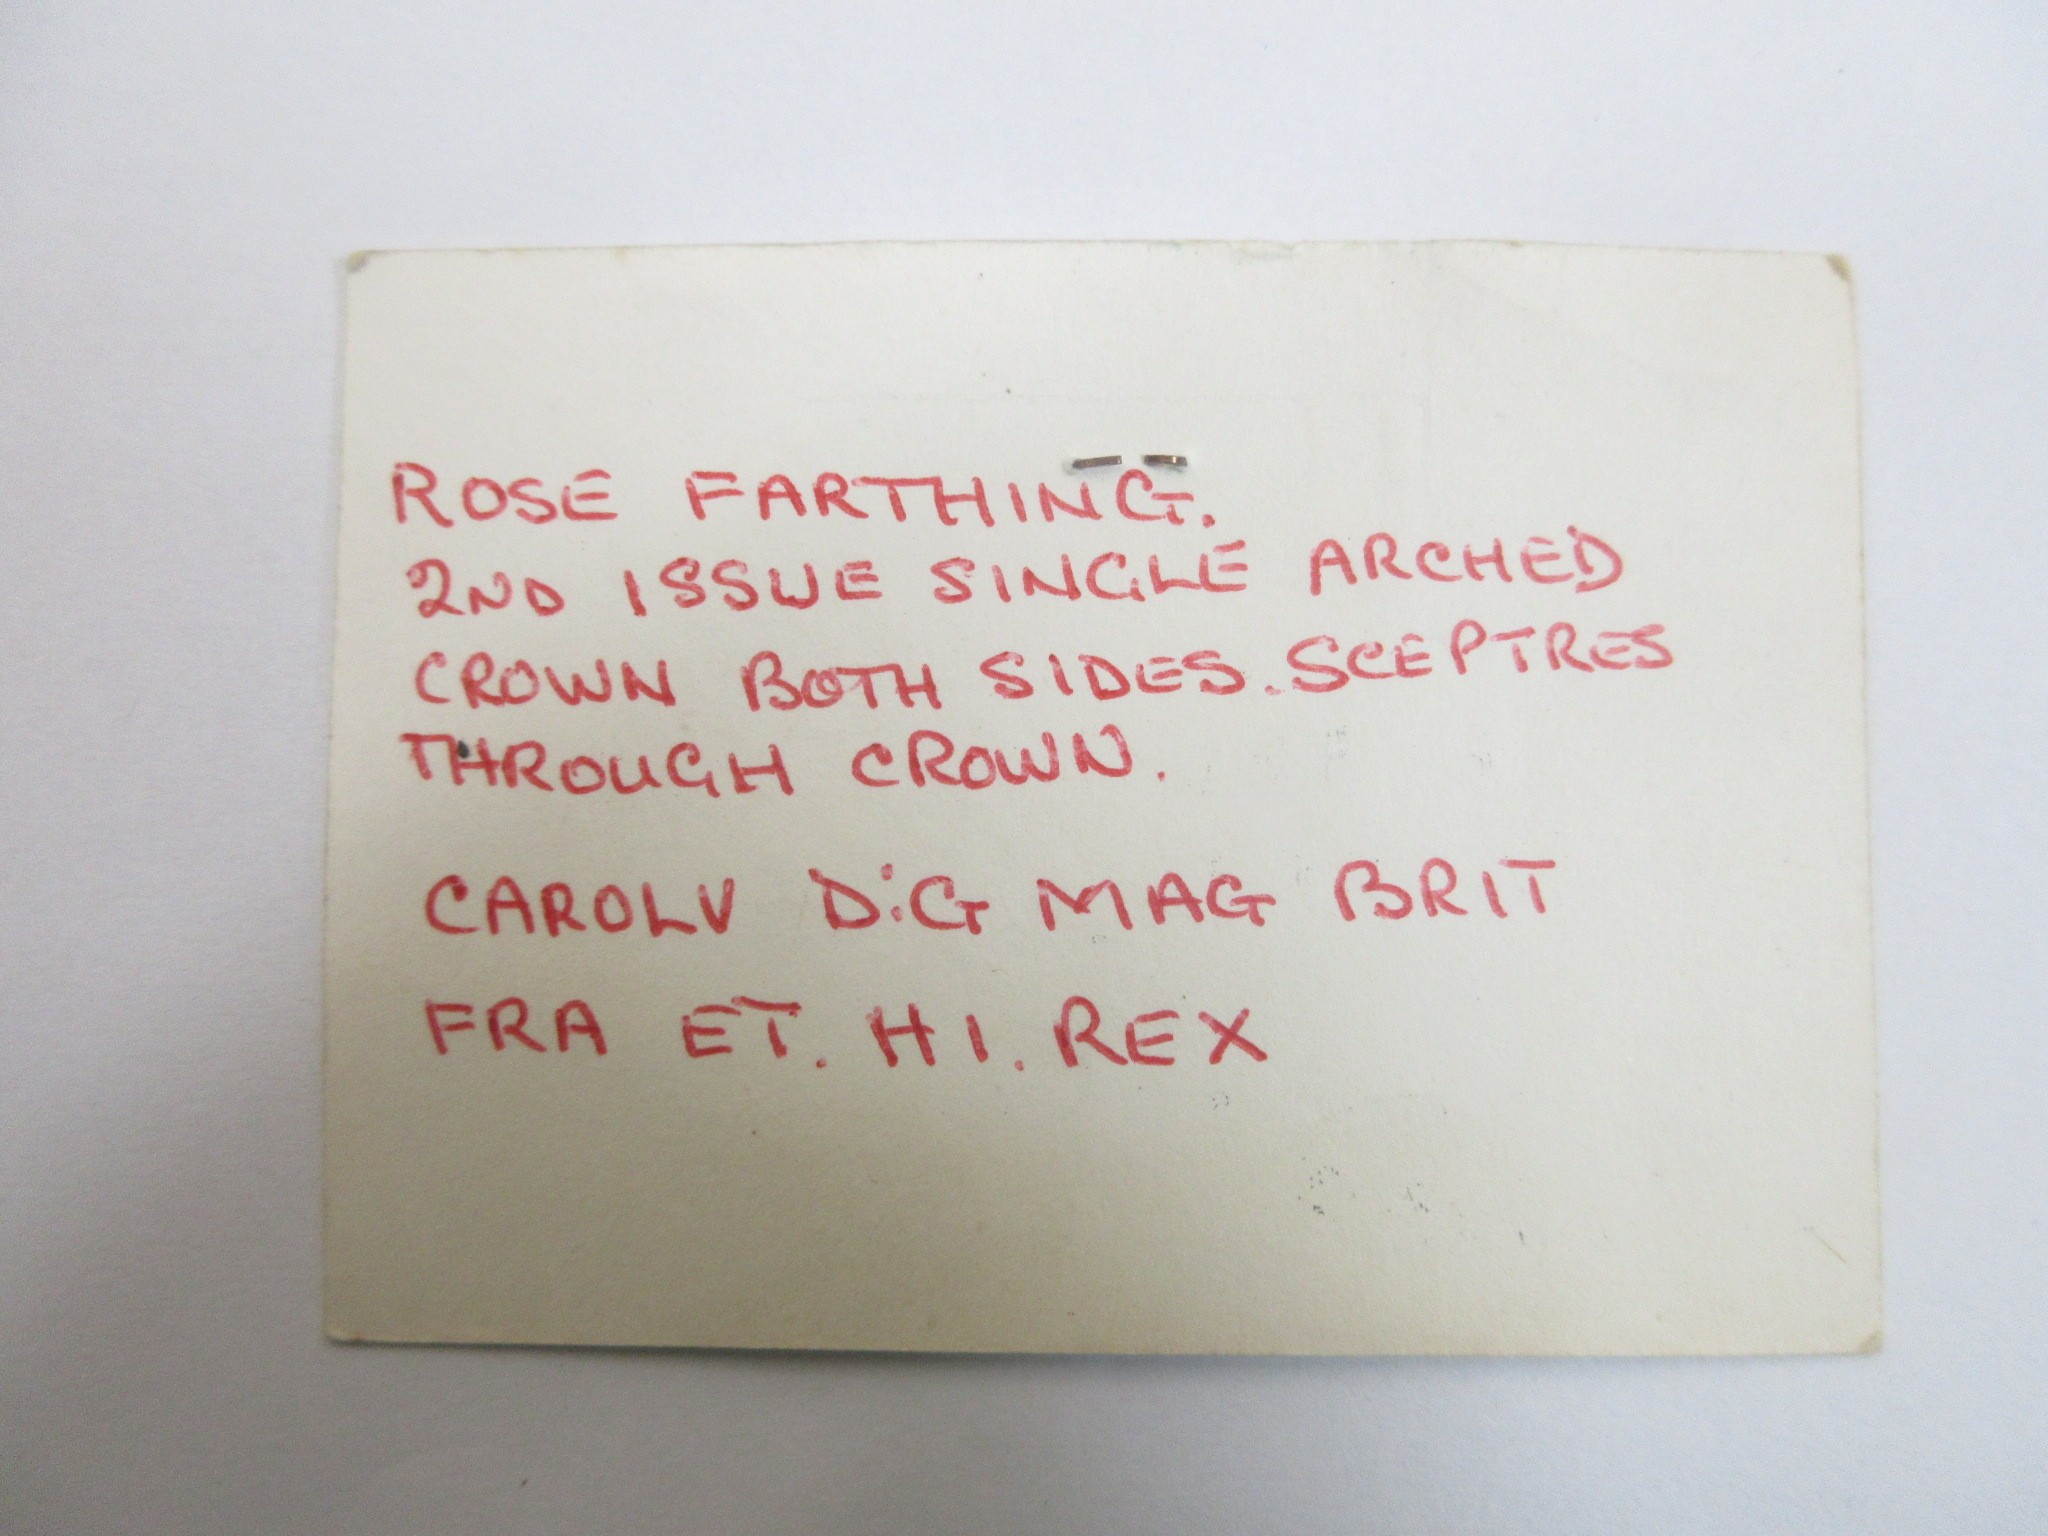 ROSE FARTHING.
2ND ISSUE SINGLE ARCHED
CROWN BOTH SIDES. SCEPTRES
THROUGH CROWN.
CAROLV D:G MAG BRIT
FRA ET. HI. REX